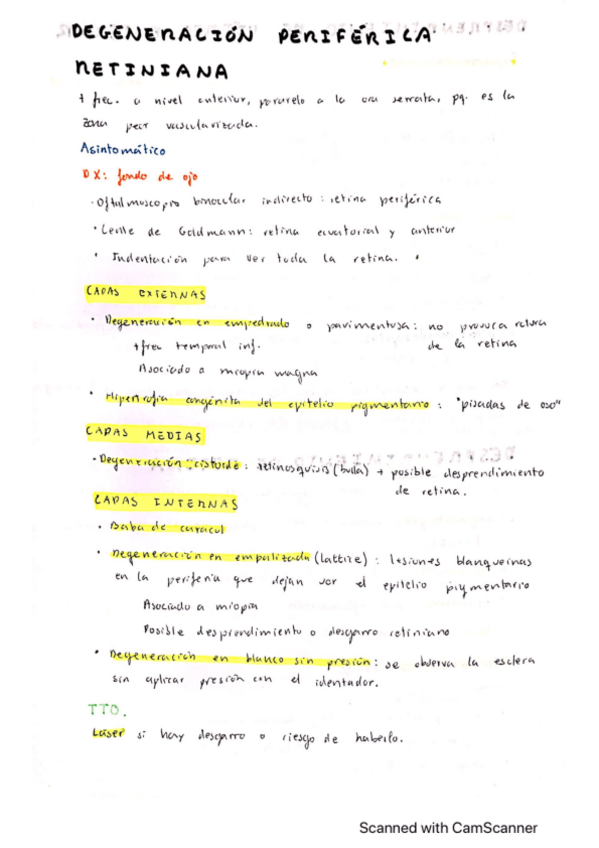 DEGENERACIÓN PERIFÉRICA
RETINIANA
+ frec. a nivel anterior, paralelo a la ora serrata, pq. es la
zona peor vascularizada.
Asintomático
DX: fondo de ojo
· Oftalmoscopio binocular indirecto : retina periférica
· Lente de Goldmann: retina ecuatorial y anterior
· Indentación para ver toda la retina.
CAPAS EXTERNAS
· Degeneración en empedrado o pavimentosa: no provoca rotura
+frec temporal inf. de la retina
Asociado a miopía magna
· Hipertrofia congénita del epitelio pigmentario : "pisadas de oso"
CAPAS MEDIAS
· Degeneración cistoide : retinosquisis (bulla) + posible desprendimiento
de retina.
CAPAS INTERNAS
· Baba de caracol
· Degeneración en empalizada (lattize) : lesiones blanquecinas
en la periferia que dejan ver el epitelio pigmentario
Asociado a miopía
Posible desprendimiento o desgarro retiniano
· Degeneración en blanco sin presión : se observa la esclera
sin aplicar presión con el identador.
TTO.
Láser si hay desgarro o riesgo de haberlo.
Scanned with CamScanner